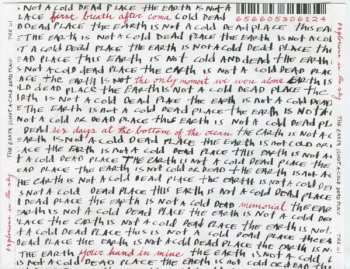 NOT A COLD DEAD PLACE THE EARTH IS NOT A
LACE first breath after coma COLD DEAD
DEAD PLACE THE EARTH IS NOT A COLD DEAD PLACE THIS EA
T A COLD DEAD PLACE THE EARTH IS NOT A COLD DEAD PLACE
EAD PLACE THIS EARTH IS NOT COLD AND DEAD THE EARTH
IS NOT A COLD DEAD PLACE THE EARTH IS NOT A COLD DEAD PLA
ACE THE EARTH IS NOT the only moment we were alone EARTH IS
LD DEAD PLACE THE EARTH IS NOT A COLD DEAD PLACE THE
RTH IS NOT A COLD DEAD PLACE THE EARTH IS NOT A COLD DEAD
THE EARTH IS NOT A COLD DEAD PLACE THE EARTH IS NOT A
NOT COLD OR DEAD PLACE THIS EARTH IS NOT A COLD DEAD PL
DEAD six days at the bottom of the ocean THE EARTH IS NOT A
EARTH IS NOT A COLD DEAD PLACE THE EARTH IS NOT COLD OR
ACE THE EARTH IS NOT A COLD DEAD PLACE THE EARTH IS NOT A
T A COLD DEAD PLACE THE EARTH IS NOT A COLD DEAD PLACE
EAD PLACE THE EARTH IS NOT COLD OR DEAD PLACE THE EARTH
THE EARTH IS NOT A COLD DEAD PLACE THE EARTH IS NOT A COLD
IS NOT A COLD DEAD PLACE THE EARTH IS NOT A COLD DEAD
DEAD PLACE THE EARTH IS NOT A COLD DEAD memorial THE EAR
EARTH IS NOT A COLD DEAD PLACE THE EARTH IS NOT A COLD
LACE THE EARTH IS NOT A COLD DEAD PLACE THE EARTH IS NOT A
COLD DEAD PLACE THIS IS NOT A COLD DEAD PLACE THE EARTH
THE EARTH your hand in mine THE EARTH IS NOT A COLD DEAD
IS NOT A COLD DEAD PLACE THE EARTH IS NOT A COLD DEAD PLACE
656605306124
explosions in the sky
explosions in the sky